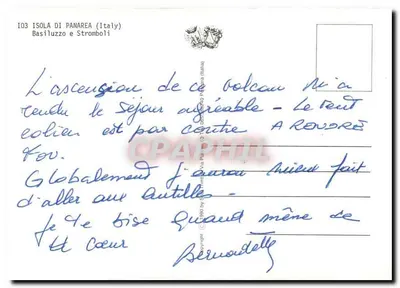 103 ISOLA DI PANAREA (Italy)
Basiluzzo e Stromboli
L'ascension de ce volcan m'a
rendu le séjour agréable - Le vent
eolien est par contre A RENDRE
FOU.
Globalement j'aurai mieux fait
d'aller aux Antilles.
Je te bise quand même de
tt cœur
Bernadette
CPAPHIL